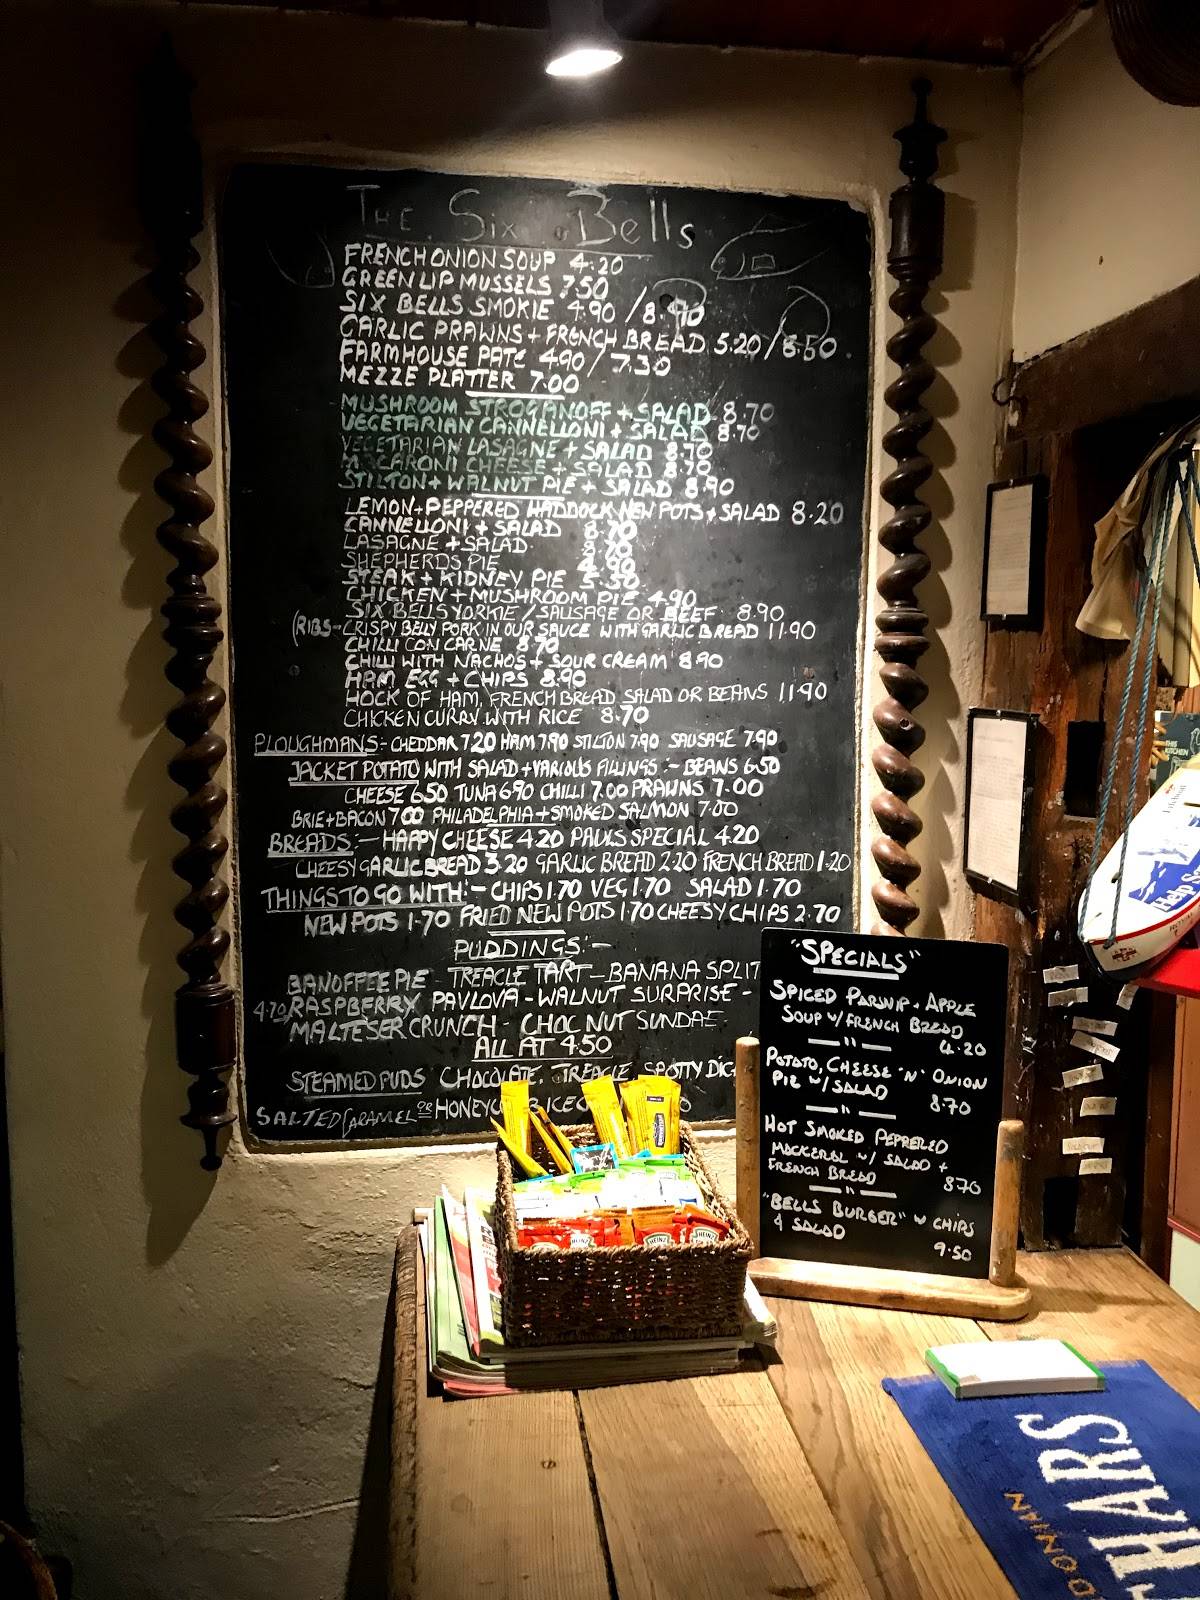 The Six Bells
FRENCH ONION SOUP 4.20
GREEN LIP MUSSELS 7.50
SIX BELLS SMOKIE 4.90 / 8.90
GARLIC PRAWNS + FRENCH BREAD 5.20 / 8.50
FARMHOUSE PATE 4.90 / 7.30
MEZZE PLATTER 7.00
MUSHROOM STROGANOFF + SALAD 8.70
VEGETARIAN CANNELLONI + SALAD 8.70
VEGETARIAN LASAGNE + SALAD 8.70
MACARONI CHEESE + SALAD 8.70
STILTON + WALNUT PIE + SALAD 8.90
LEMON + PEPPERED HADDOCK NEW POTS + SALAD 8.20
CANNELLONI + SALAD 8.70
LASAGNE + SALAD 8.70
SHEPHERDS PIE 4.90
STEAK + KIDNEY PIE 5.30
CHICKEN + MUSHROOM PIE 4.90
SIX BELLS YORKIE / SAUSAGE OR BEEF 8.90
(RIBS - CRISPY BELLY PORK IN OUR SAUCE WITH GARLIC BREAD 11.90
CHILLI CON CARNE 8.70
CHILLI WITH NACHOS + SOUR CREAM 8.90
HAM EGG + CHIPS 8.90
HOCK OF HAM, FRENCH BREAD SALAD OR BEANS 11.90
CHICKEN CURRY WITH RICE 8.70
PLOUGHMANS:- CHEDDAR 7.20 HAM 7.90 STILTON 7.90 SAUSAGE 7.90
JACKET POTATO WITH SALAD + VARIOUS FILLINGS :- BEANS 6.50
CHEESE 6.50 TUNA 6.90 CHILLI 7.00 PRAWNS 7.00
BRIE + BACON 7.00 PHILADELPHIA + SMOKED SALMON 7.00
BREADS:- HAPPY CHEESE 4.20 PAULS SPECIAL 4.20
CHEESY GARLIC BREAD 3.20 GARLIC BREAD 2.20 FRENCH BREAD 1.20
THINGS TO GO WITH:- CHIPS 1.70 VEG 1.70 SALAD 1.70
NEW POTS 1.70 FRIED NEW POTS 1.70 CHEESY CHIPS 2.70
PUDDINGS:-
BANOFFEE PIE - TREACLE TART - BANANA SPLIT
4.70 RASPBERRY PAVLOVA - WALNUT SURPRISE -
MALTESER CRUNCH - CHOC NUT SUNDAE
ALL AT 4.50
STEAMED PUDS CHOCOLATE, TREACLE, SPOTTY DIC
SALTED CARAMEL OR
"SPECIALS"
SPICED PARSNIP + APPLE
SOUP W/ FRENCH BREAD
4.20
— " —
POTATO, CHEESE 'N' ONION
PIE W/ SALAD
8.70
— " —
HOT SMOKED PEPPERED
MACKERAL W/ SALAD +
FRENCH BREAD
8.70
— " —
"BELLS BURGER" W CHIPS
& SALAD
9.50
HEINZ HEINZ HEINZ
Help Sa
THIS
KITCHEN
THARS
DONIAN